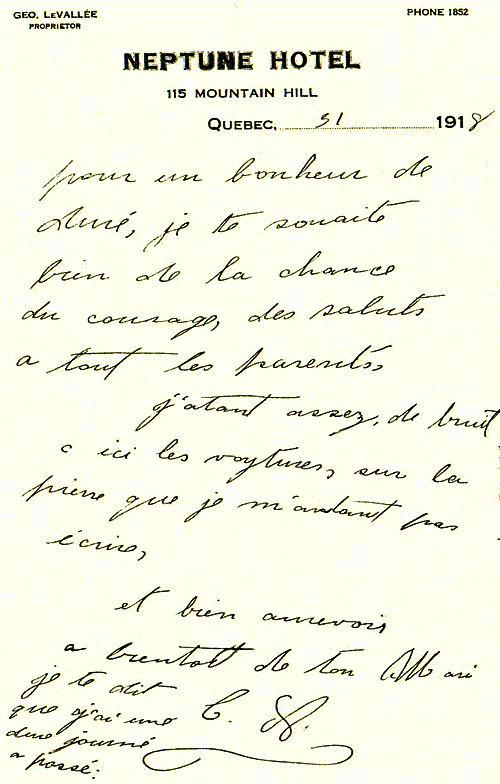 GEO. LEVALLÉE
PROPRIETOR
PHONE 1852
NEPTUNE HOTEL
115 MOUNTAIN HILL
QUEBEC, 31 1918
pour un bonheur de
duré, je te souaite
bien de la chance
du courage, des saluts
a tout les parents,
j'atant assez, de bruit
c ici les voytures, sur la
pierre que je m'antant pas
écrire,
et bien aurevoir
a bientott de ton Mari
je te dit C. N.
que j'ai une
dure journé
a passé.